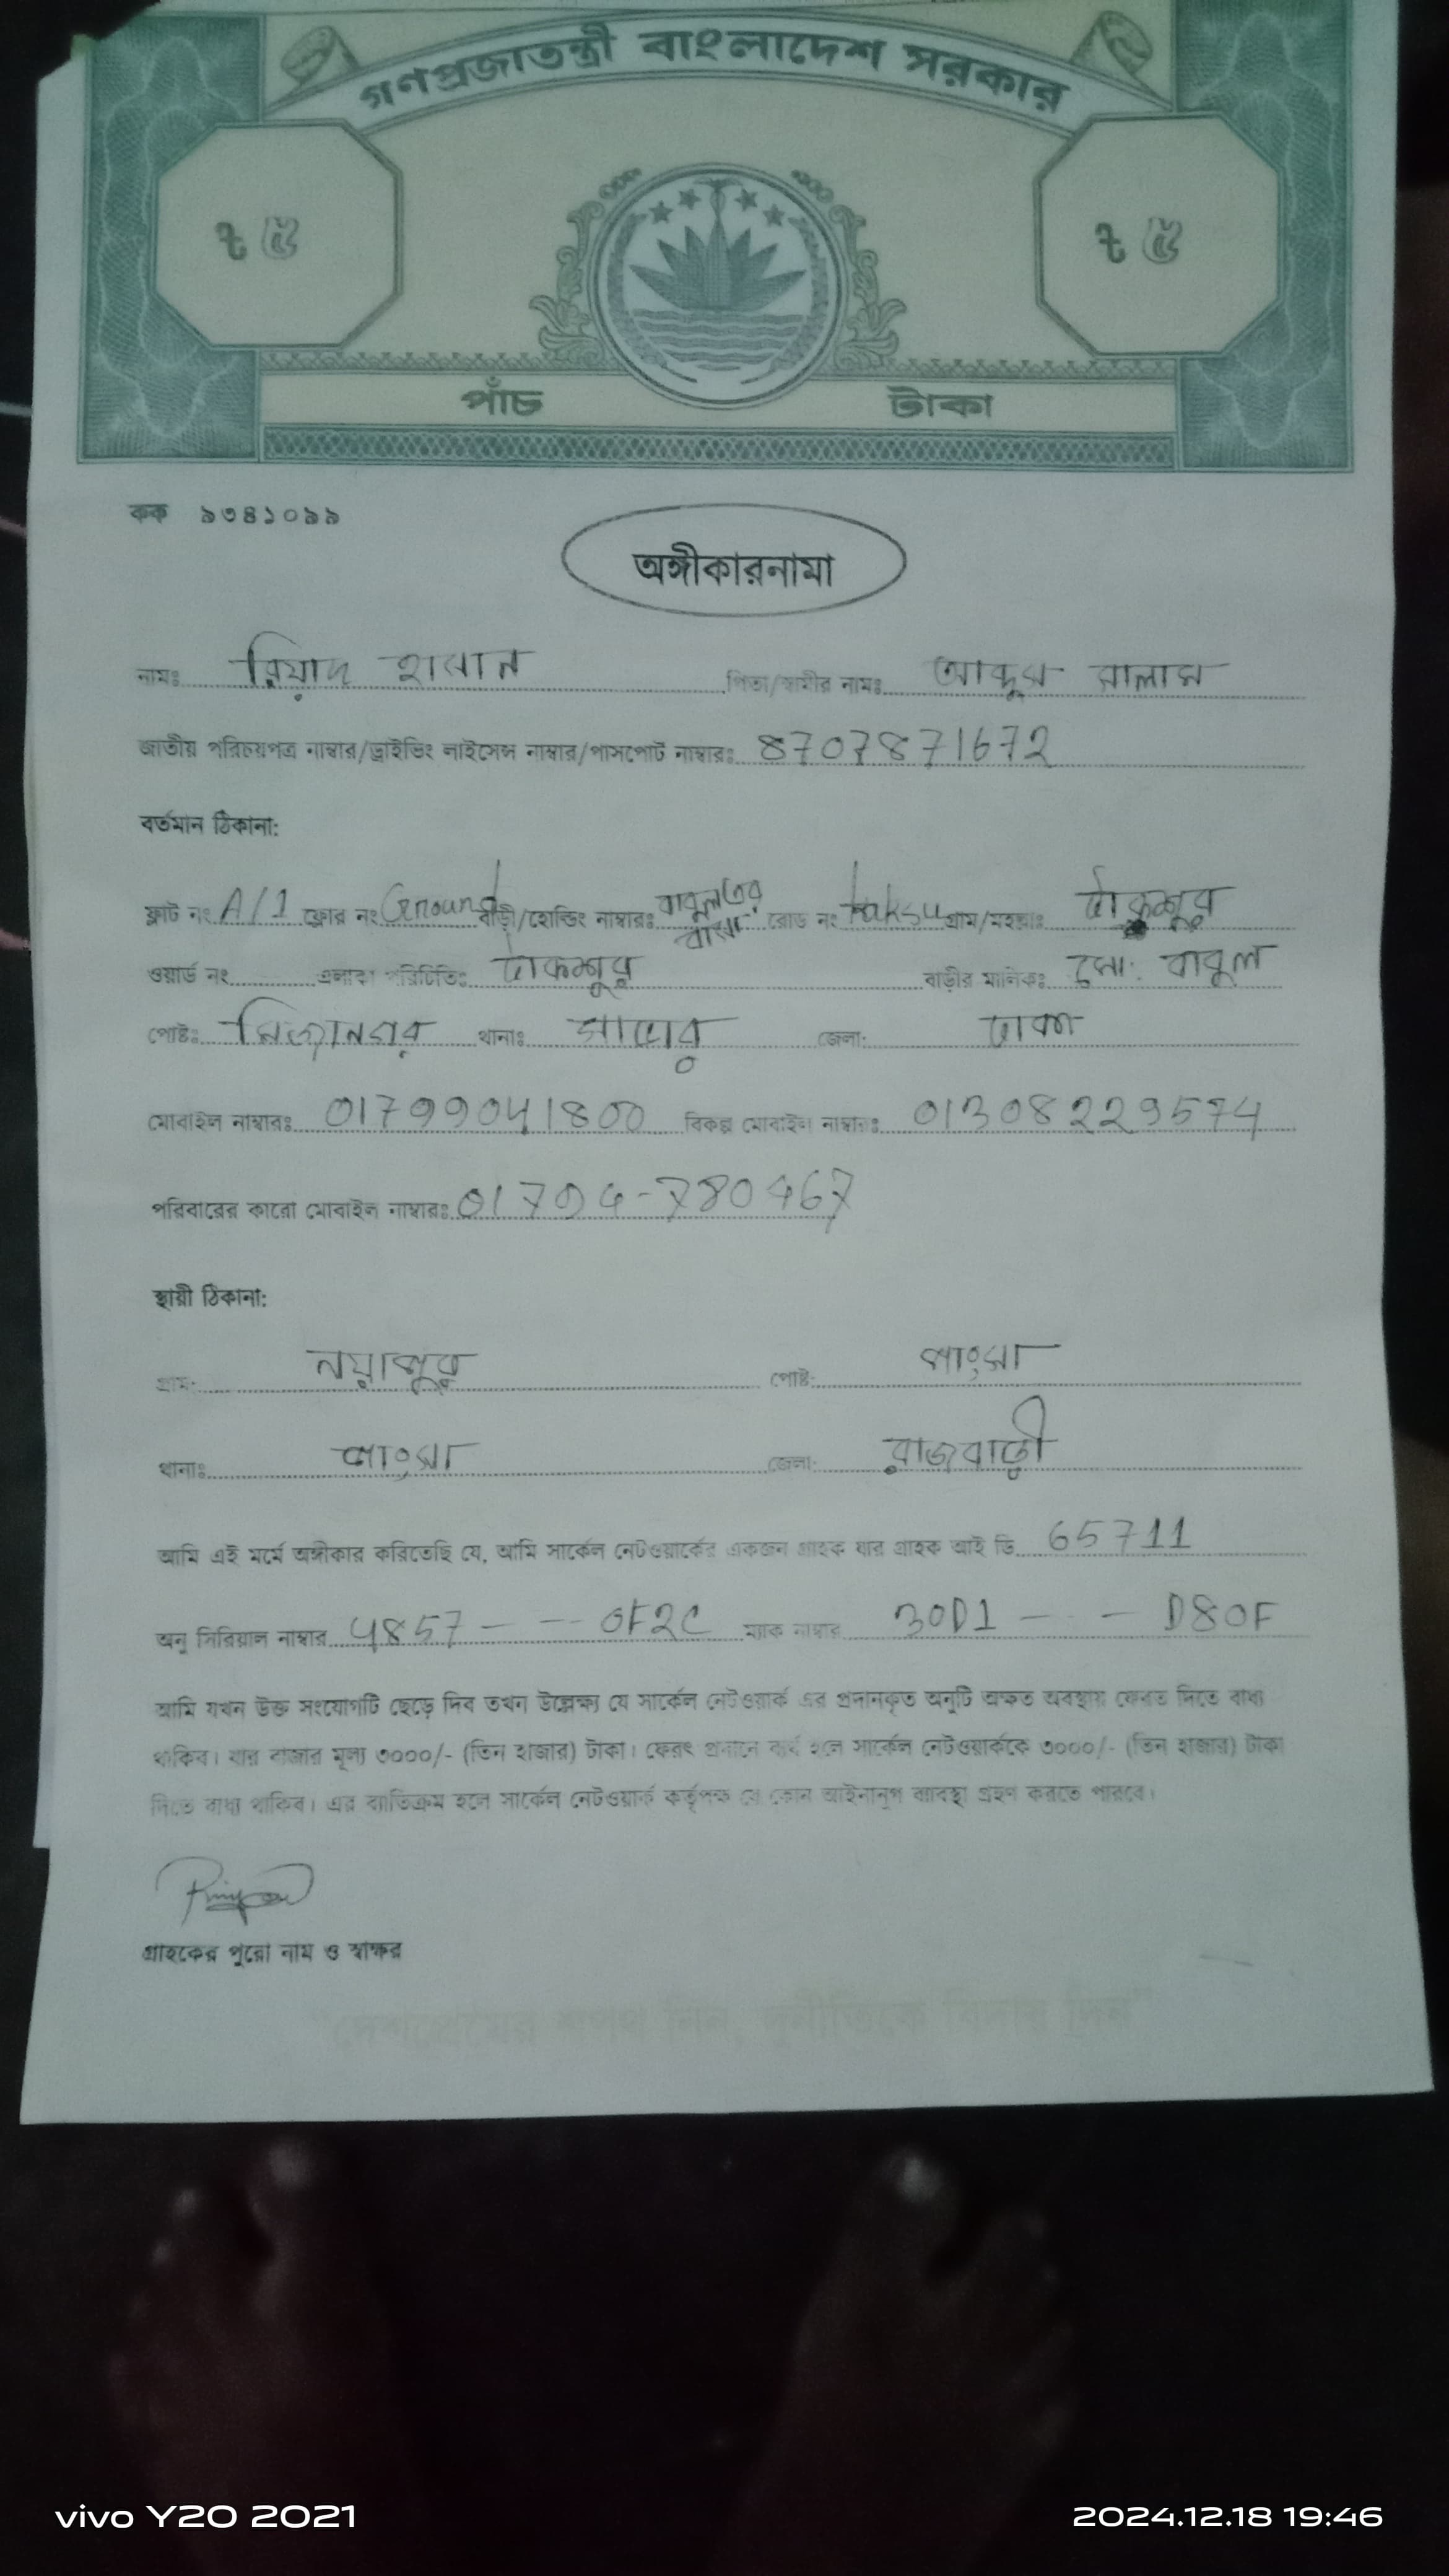 গণপ্রজাতন্ত্রী বাংলাদেশ সরকার
৳ ৫ ৳ ৫
পাঁচ টাকা
কক ৯৩৪১০৯৯
অঙ্গীকারনামা
নামঃ রিয়াদ হাসান পিতা/স্বামীর নামঃ আব্দুস সালাম
জাতীয় পরিচয়পত্র নাম্বার/ড্রাইভিং লাইসেন্স নাম্বার/পাসপোর্ট নাম্বারঃ 8707871672
বর্তমান ঠিকানা:
ফ্লাট নং A/1 ফ্লোর নং Ground বাড়ী/হোল্ডিং নাম্বারঃ বাবুলের বাসা রোড নং taksu গ্রাম/মহল্লাঃ
ওয়ার্ড নং এলাকা পরিচিতিঃ বাড়ীর মালিকঃ মোঃ বাবুল
পোষ্টঃ মির্জানগর থানাঃ সাভার জেলা: ঢাকা
মোবাইল নাম্বারঃ 01799041800 বিকল্প মোবাইল নাম্বারঃ 01308229574
পরিবারের কারো মোবাইল নাম্বারঃ
স্থায়ী ঠিকানা:
গ্রাম: নয়াপুর পোষ্ট: পাংসা
থানাঃ পাংসা জেলা: রাজবাড়ী
আমি এই মর্মে অঙ্গীকার করিতেছি যে, আমি সার্কেল নেটওয়ার্কের একজন গ্রাহক যার গ্রাহক আই ডি 65711
অনু সিরিয়াল নাম্বার 4857 - -- 0F2C ম্যাক নাম্বার 30D1 - - D80F
আমি যখন উক্ত সংযোগটি ছেড়ে দিব তখন উল্লেক্ষ্য যে সার্কেল নেটওয়ার্ক এর প্রদানকৃত অনুটি অক্ষত অবস্থায় ফেরত দিতে বাধ্য
থাকিব। যার বাজার মূল্য ৩০০০/- (তিন হাজার) টাকা। ফেরৎ প্রদানে ব্যর্থ হলে সার্কেল নেটওয়ার্ককে ৩০০০/- (তিন হাজার) টাকা
দিতে বাধ্য থাকিব। এর ব্যাতিক্রম হলে সার্কেল নেটওয়ার্ক কর্তৃপক্ষ যে কোন আইনানুগ ব্যাবস্থা গ্রহণ করতে পারবে।
গ্রাহকের পুরো নাম ও স্বাক্ষর
"দেশপ্রেমের শপথ নিন, দুর্নীতিকে বিদায় দিন"
vivo Y20 2021 2024.12.18 19:46